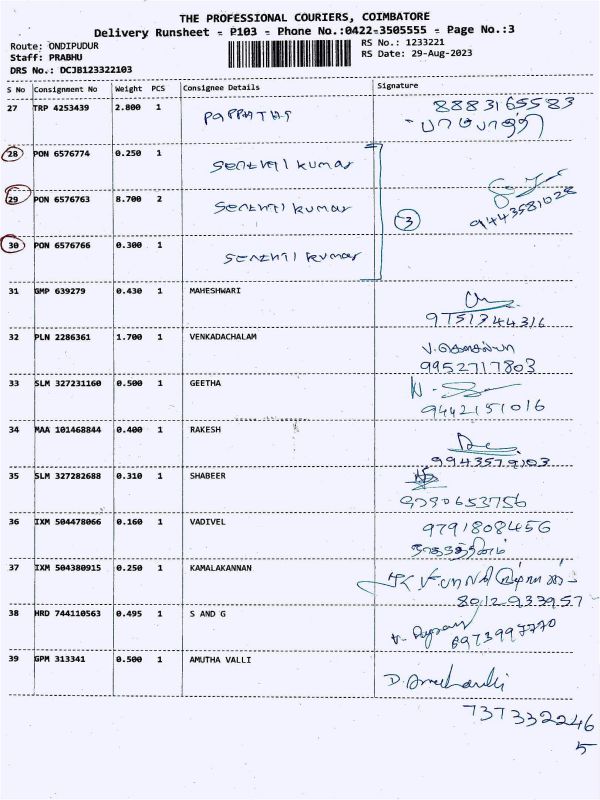 THE PROFESSIONAL COURIERS, COIMBATORE
Delivery Runsheet - P103 - Phone No.:0422-3505555 - Page No.:3
Route: ONDIPUDUR RS No.: 1233221
Staff: PRABHU RS Date: 29-Aug-2023
DRS No.: DCJB123322103
S No Consignment No Weight PCS Consignee Details Signature
27 TRP 4253439 2.800 1 8883165583
28 PON 6576774 0.250 1 Senthil kumar
29 PON 6576763 8.700 2 Senthil kumar 3 9443581028
30 PON 6576766 0.300 1 Senthil kumar
31 GMP 639279 0.430 1 MAHESHWARI
9751344316
32 PLN 2286361 1.700 1 VENKADACHALAM
9952717803
33 SLM 327231160 0.500 1 GEETHA
9442151016
34 MAA 101468844 0.400 1 RAKESH
9943579103
35 SLM 327282688 0.310 1 SHABEER
36 IXM 504478066 0.160 1 VADIVEL 9791808456
37 IXM 504380915 0.250 1 KAMALAKANNAN
8012933957
38 HRD 744110563 0.495 1 S AND G
39 GPM 313341 0.500 1 AMUTHA VALLI
737332246
5